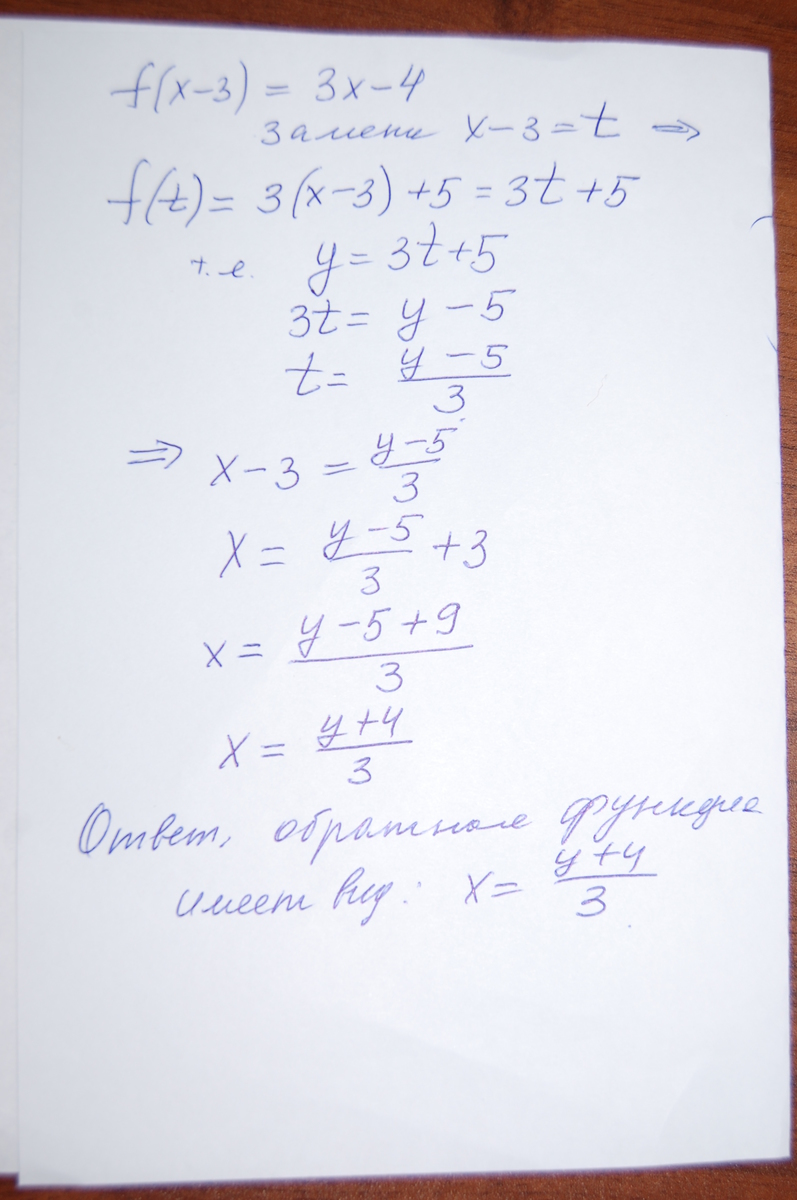 f(x-3) = 3x-4
замени x-3=t ⇒
f(t)= 3(x-3)+5=3t+5
т.е. y=3t+5
3t= y-5
t= (y-5)/3
⇒ x-3 = (y-5)/3
x = (y-5)/3 +3
x= (y-5+9)/3
x= (y+4)/3
Ответ, обратная функция
имеет вид: x= (y+4)/3